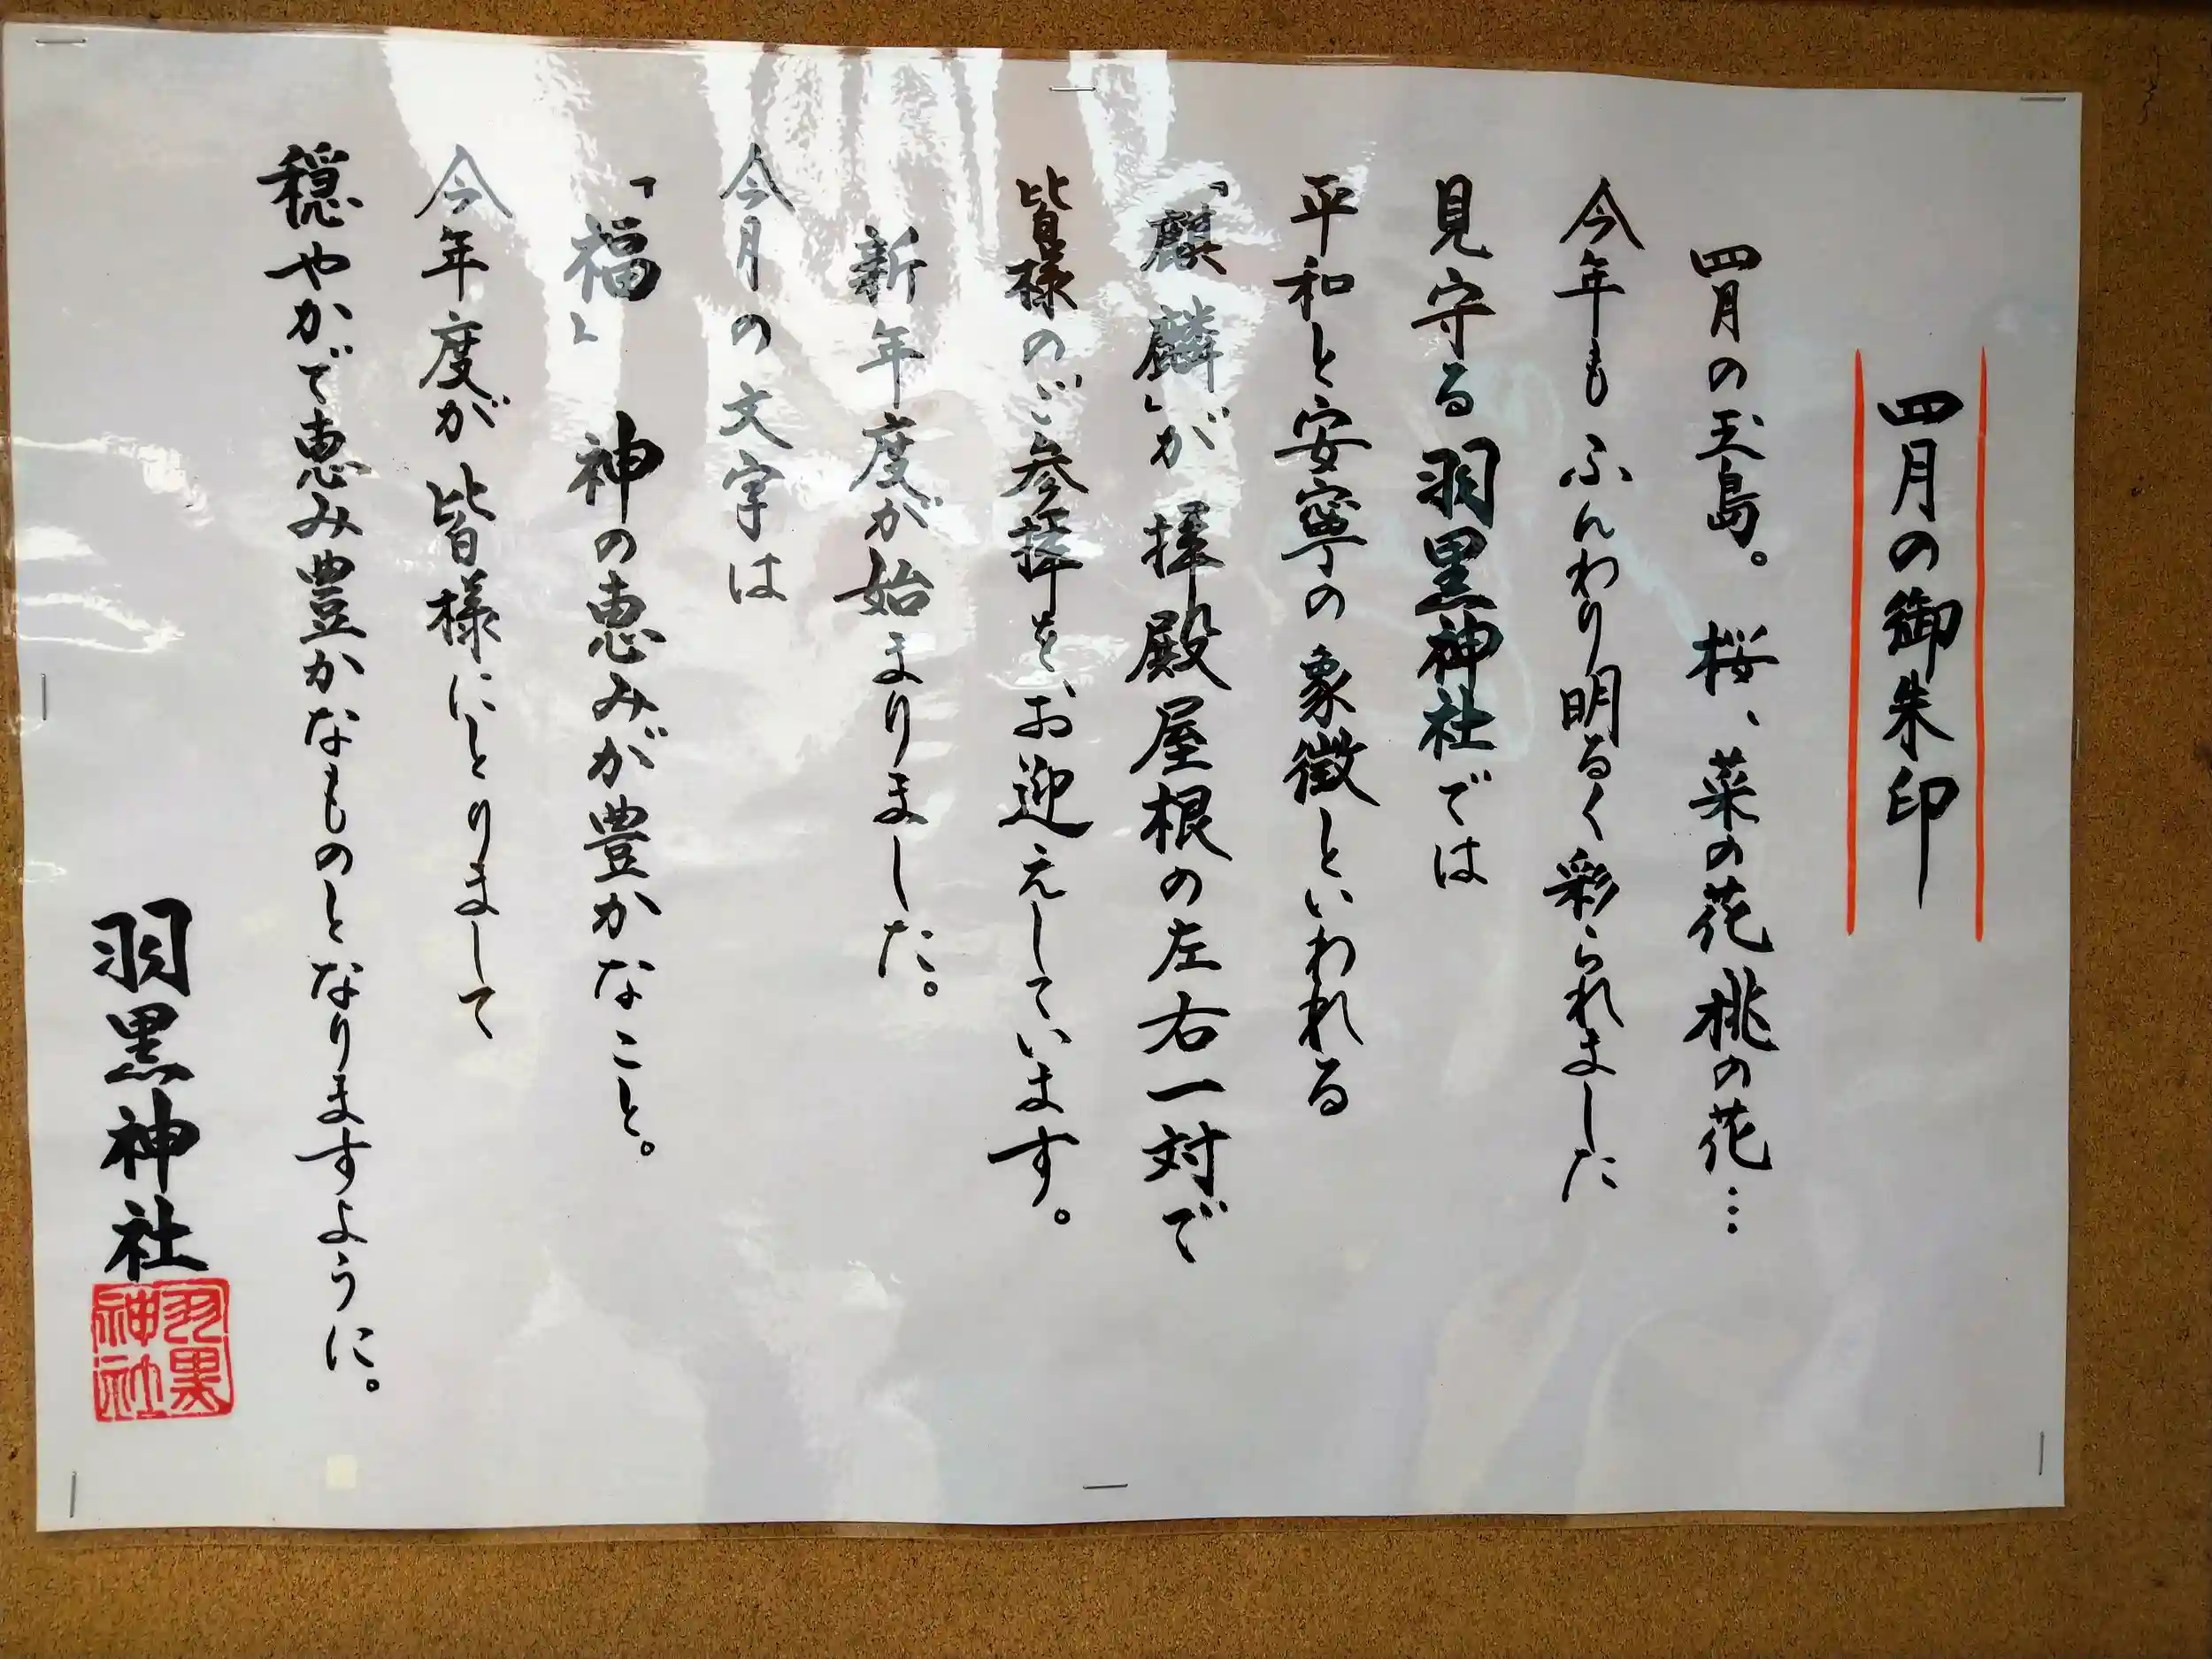 四月の御朱印
四月の玉島。桜、菜の花桃の花…
今年もふんわり明るく彩られました
見守る羽黒神社では
平和と安寧の象徴といわれる
「麒麟」が拝殿屋根の左右一対で
皆様のご参拝を、お迎えしています。
新年度が始まりました。
今月の文字は
「福」 神の恵みが豊かなこと。
今年度が皆様にとりまして
穏やかで恵み豊かなものとなりますように。
羽黒神社
羽黒
神社